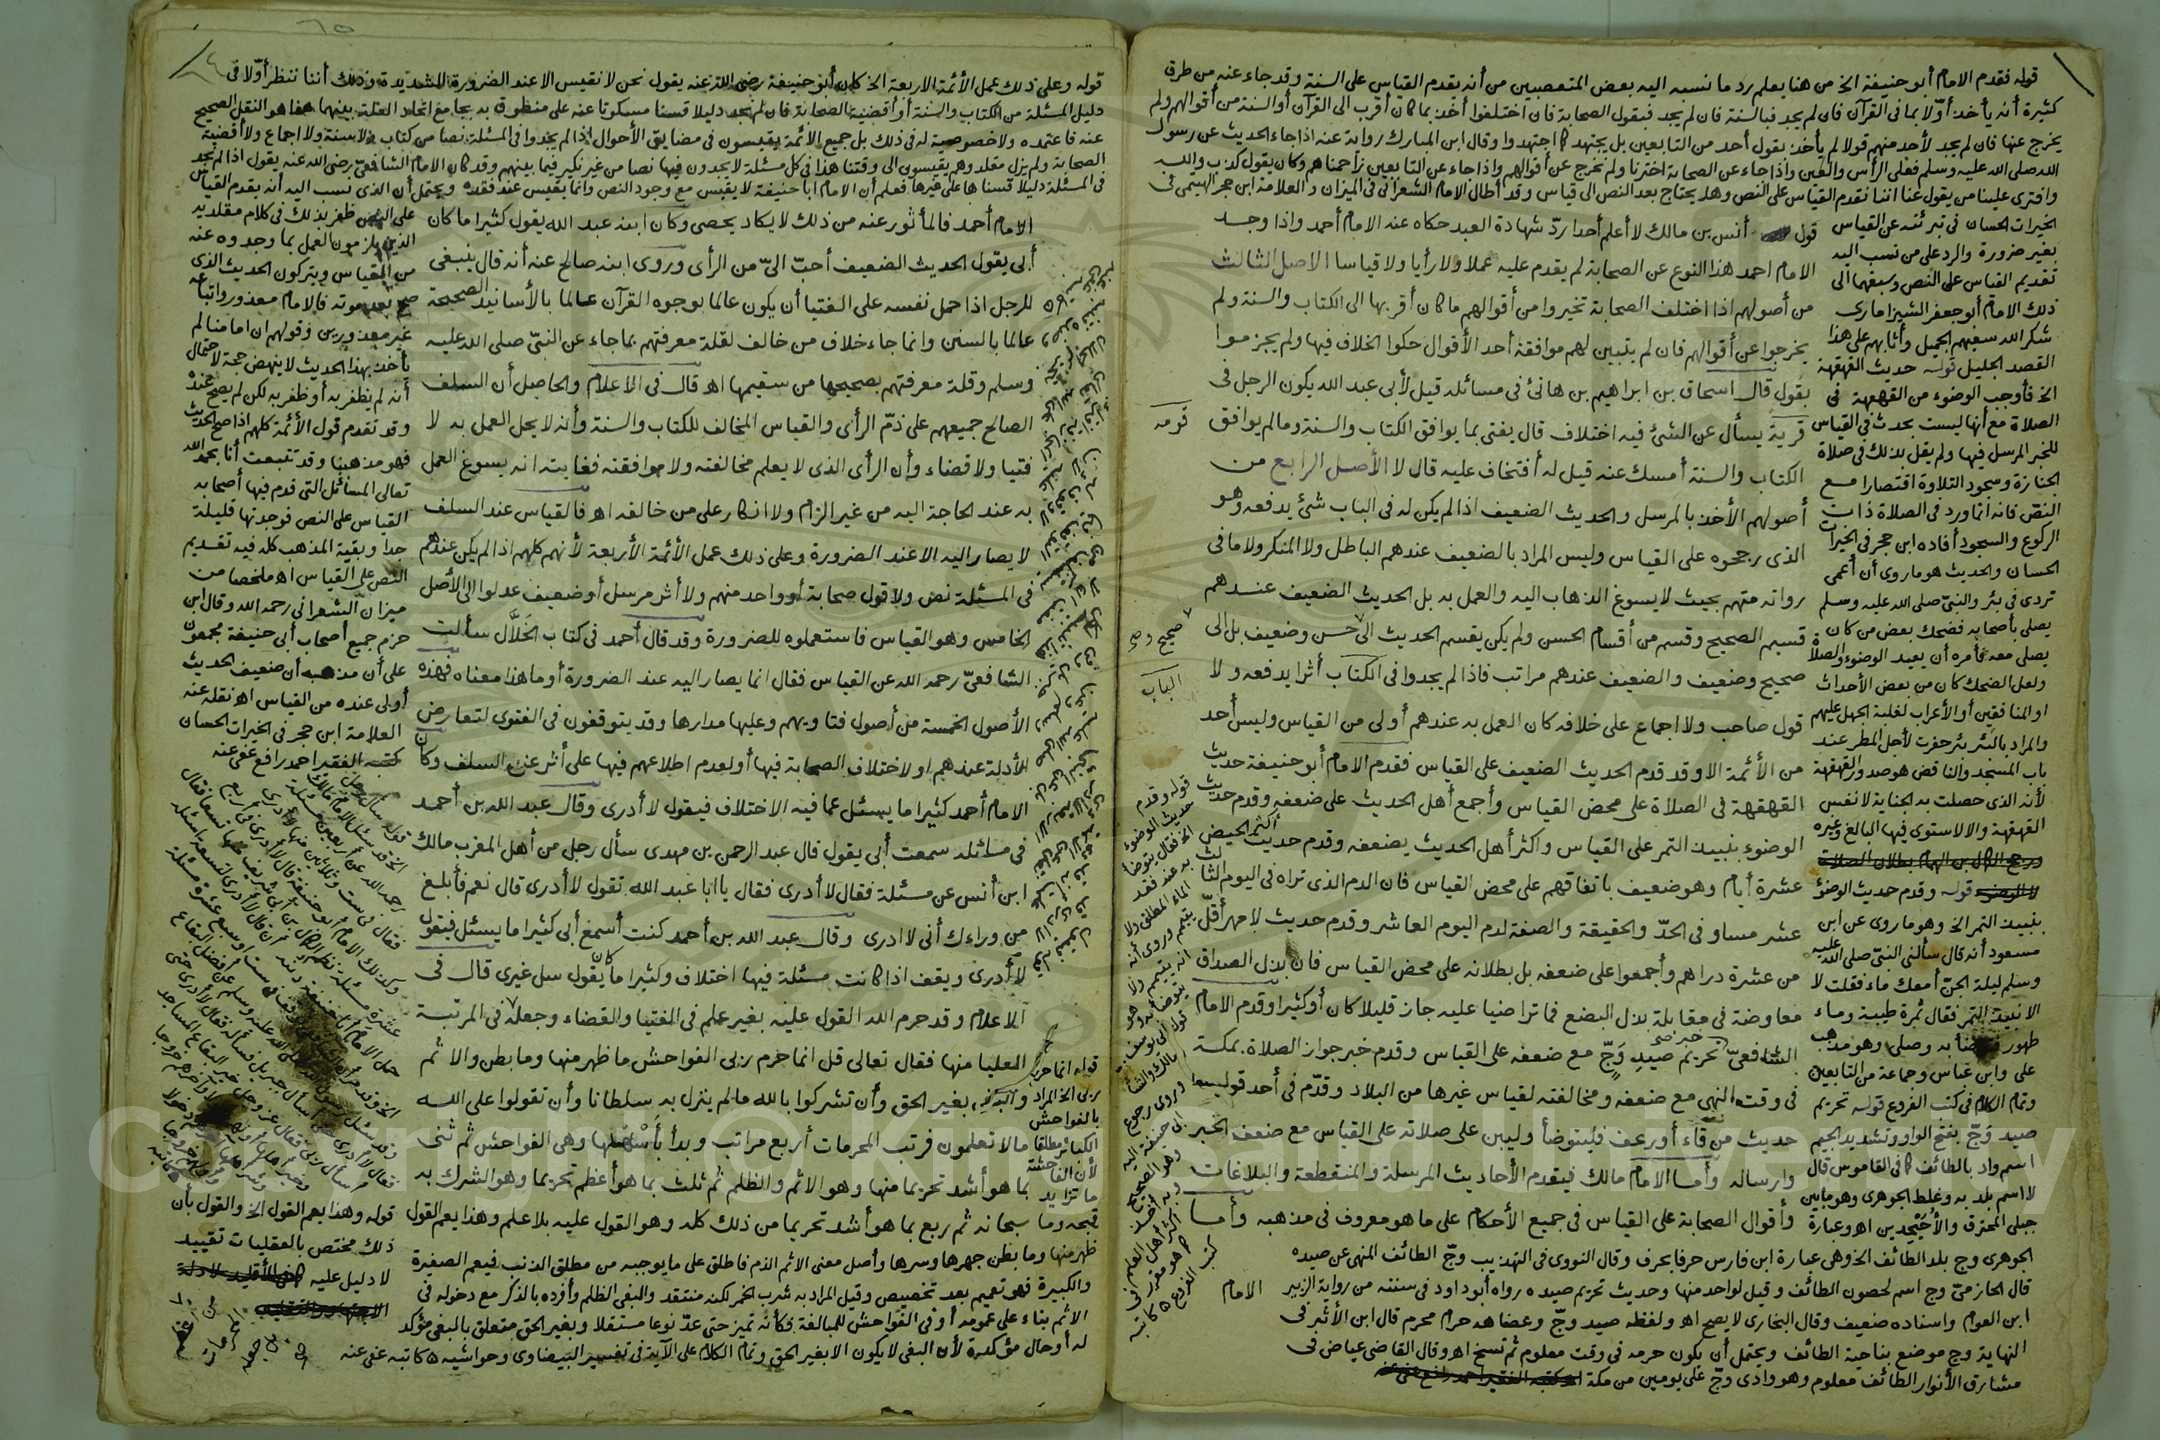 قوله فقدم الامام أبو حنيفة الخ من هنا يعلم رد ما نسبه اليه بعض المتعصبين من أنه يقدم القياس على السنة وقد جاء عنه من طرق
كثيرة أنه يأخذ أولا بما فى القرآن فان لم يجد فبالسنة فان لم يجد فبقول الصحابة فان اختلفوا أخذ بما كان أقرب الى القرآن أو السنة من أقوالهم ولم
يخرج عنها فان لم يجد لأحد منهم قولا لم يأخذ بقول أحد من التابعين بل يجتهد كما اجتهدوا وقال ابن المبارك رواية عنه اذا جاء الحديث عن رسول
الله صلى الله عليه وسلم فعلى الرأس والعين واذا جاء عن الصحابة اخترنا ولم نخرج عن أقوالهم واذا جاء عن التابعين زاحمناهم وكان يقول كذب والله
وافترى علينا من يقول عنا اننا نقدم القياس على النص وهل يحتاج بعد النص الى قياس وقد أطال الامام الشعرانى فى الميزان والعلامة ابن حجر الهيتمى فى
الخيرات الحسان فى تبرئته عن القياس
بغير ضرورة والرد على من نسب اليه
تقديم القياس على النص وسبقهما الى
ذلك الامام أبو جعفر الشيزامارى
شكر الله سعيهم الجميل وأثابهم على هذا
القصد الجليل قوله حديث القهقهة
الخ فأوجب الوضوء من القهقهة فى
الصلاة مع أنها ليست بحدث فى القياس
للخبر المرسل فيها ولم يقل بذلك فى صلاة
الجنازة وسجود التلاوة اقتصارا مع
النص فانه انما ورد فى الصلاة ذات
الركوع والسجود أفاده ابن حجر فى الخيرات
الحسان والحديث هو ما روى أن أعمى
تردى فى بئر والنبى صلى الله عليه وسلم
يصلى بأصحابه فضحك بعض من كان
يصلى معه فأمره أن يعيد الوضوء والصلاة
ولعل الضحك كان من بعض الأحداث
او المنافقين أو الأعراب لغلبة الجهل عليهم
والمراد بالبئر بئر حفرت لأجل المطر عند
باب المسجد والناقض هو صدور القهقهة
لأنه الذى حصلت به الجناية لا نفس
القهقهة والا لاستوى فيها البالغ وغيره
قوله وقدم حديث الوضوء
بنبيذ التمر الخ وهو ما روى عن ابن
مسعود أنه قال سألنى النبى صلى الله عليه
وسلم ليلة الجن أمعك ماء فقلت لا
الا نبيذ التمر فقال ثمرة طيبة وماء
طهور فتوضأ به وصلى وهو مذهب
على وابن عباس وجماعة من التابعين
وتمام الكلام فى كتب الفروع قوله تحريم
صيد وج بفتح الواو وتشديد الجيم
اسم واد بالطائف كما فى القاموس قال
لا اسم بلد به وغلط الجوهرى وهو ما بين
جبلى المحترق والأحيحدين اه وعبارة
الجوهرى وج بلد الطائف الخ وهى عبارة ابن فارس حرفا بحرف وقال النووى فى التهذيب وج الطائف المنهى عن صيده
قال الحازمى وج اسم لحصون الطائف وقيل لواحد منها وحديث تحريم صيده رواه أبو داود فى سننه من رواية الزبير
ابن العوام واسناده ضعيف وقال البخارى لا يصح اه ولفظه صيد وج وعضاهه حرام محرم قال ابن الأثير فى
النهاية وج موضع بناحية الطائف ويحتمل أن يكون حرمه فى وقت معلوم ثم نسخ اه وقال القاضى عياض فى
مشارق الأنوار الطائف معلوم وهو وادى وج على يومين من مكة
قول أنس بن مالك لا أعلم أحدا رد شهادة العبد حكاه عنه الامام أحمد واذا وجد
الامام احمد هذا النوع عن الصحابة لم يقدم عليه عملا ولا رأيا ولا قياسا الاصل الثالث
من أصولهم اذا اختلف الصحابة تخيروا من أقوالهم ما كان أقربها الى الكتاب والسنة ولم
يخرجوا عن أقوالهم فان لم يتبين لهم موافقة أحد الأقوال حكوا الخلاف فيها ولم يجزموا
بقول قال اسحاق بن ابراهيم بن هانئ فى مسائله قيل لأبى عبد الله يكون الرجل فى
قرية يسأل عن الشئ فيه اختلاف قال يفتى بما يوافق الكتاب والسنة وما لم يوافق
قومه
الكتاب والسنة أمسك عنه قيل له أفتخاف عليه قال لا الأصل الرابع من
أصولهم الأخذ بالمرسل والحديث الضعيف اذا لم يكن له فى الباب شئ يدفعه وهو
الذى رجحوه على القياس وليس المراد بالضعيف عندهم الباطل ولا المنكر ولا ما فى
رواته متهم بحيث لا يسوغ الذهاب اليه والعمل به بل الحديث الضعيف عندهم
قسيم الصحيح وقسم من أقسام الحسن ولم يكن يقسم الحديث الى حسن وضعيف بل الى
صحيح و صح
صحيح وضعيف والضعيف عندهم مراتب فاذا لم يجدوا فى الكتاب أثرا يدفعه ولا
الباب
قول صاحب ولا اجماع على خلافه كان العمل به عندهم أولى من القياس وليس أحد
من الأئمة الا وقد قدم الحديث الضعيف على القياس فقدم الامام أبو حنيفة حديث
القهقهة فى الصلاة على محض القياس وأجمع أهل الحديث على ضعفه وقدم حديث
الوضوء بنبيذ التمر على القياس وأكثر أهل الحديث يضعفه وقدم حديث أكثر الحيض
عشرة أيام وهو ضعيف باتفاقهم على محض القياس فان الدم الذى تراه فى اليوم الثالث
عشر مساو فى الحد والحقيقة والصفة لدم اليوم العاشر وقدم حديث لا مهر أقل
من عشرة دراهم وأجمعوا على ضعفه بل بطلانه على محض القياس فان بذل الصداق
معاوضة فى مقابلة بذل البضع فما تراضيا عليه جاز قليلا كان أو كثيرا وقدم الامام
الشافعى خبر تحريم صيد وج مع ضعفه على القياس وقدم خبر جواز الصلاة بمكة
فى وقت النهى مع ضعفه ومخالفته لقياس غيرها من البلاد وقدم فى أحد قوليه
حديث من قاء أو رعف فليتوضأ وليبن على صلاته على القياس مع ضعف الخبر
وارساله وأما الامام مالك فيقدم الأحاديث المرسلة والمنقطعة والبلاغات
وأقوال الصحابة على القياس فى جميع الأحكام على ما هو معروف فى مذهبه وأما
الامام
قوله وقدم
حديث الوضوء
الخ فقال يتوضأ
به عند فقد
الماء المطلق ولا
يتيمم وروى أنه
وروى رجوع
أبى حنيفة اليه
وهو الصحيح
كتب الفروع
قوله وعلى ذلك عمل الأئمة الاربعة الخ كان أبو حنيفة رضى الله عنه يقول نحن لا نقيس الا عند الضرورة الشديدة وذلك أننا ننظر أولا فى
دليل المسئلة من الكتاب والسنة أو أقضية الصحابة فان لم نجد دليلا قسنا مسكوتا عنه على منطوق به بجامع اتحاد العلة بينهما هذا هو النقل الصحيح
عنه فاعتمده ولا خصوصية له فى ذلك بل جميع الأئمة يقيسون فى مضايق الأحوال اذا لم يجدوا فى المسئلة نصا من كتاب ولا سنة ولا اجماع ولا أقضية
الصحابة ولم يزل مقلدوهم يقيسون الى وقتنا هذا فى كل مسئلة لا يجدون فيها نصا من غير نكير فيما بينهم وقد كان الامام الشافعى رضى الله عنه يقول اذا لم نجد
فى المسئلة دليلا قسناها على غيرها فعلم أن الامام ابا حنيفة لا يقيس مع وجود النص وانما يقيس عند فقده ويحتمل أن الذى نسب اليه أنه يقدم القياس
على النص ظفر بذلك فى كلام مقلديه
الذين يلزمون العمل بما وجدوه عنه
من القياس ويتركون الحديث الذى
صح بعد موته فالامام معذور واتباعه
غير معذورين وقولهم ان امامنا لم
يأخذ بهذا الحديث لا ينهض حجة لاحتمال
أنه لم يظفر به أو ظفر به لكن لم يصح عنده
وقد تقدم قول الأئمة كلهم اذا صح الحديث
فهو مذهبنا وقد تتبعت أنا بحمد الله
تعالى المسائل التى قدم فيها أصحابه
القياس على النص فوجدتها قليلة
جدا وبقية المذهب كله فيه تقديم
النص على القياس اه ملخصا من
ميزان الشعرانى رحمه الله وقال ابن
حزم جميع أصحاب أبى حنيفة مجمعون
على أن مذهبه أن ضعيف الحديث
أولى عنده من القياس اه نقله عنه
العلامة ابن حجر فى الخيرات الحسان
كتبه الفقير احمد رافع عفى عنه
الامام أحمد فالمأثور عنه من ذلك لا يكاد يحصى وكان ابنه عبد الله يقول كثيرا ما كان
أبى يقول الحديث الضعيف أحب الى من الرأى وروى ابنه صالح عنه أنه قال ينبغى
للرجل اذا حمل نفسه على الفتيا أن يكون عالما بوجوه القرآن عالما بالأسانيد الصحيحة
عالما بالسنن وانما جاء خلاف من خالف لقلة معرفتهم بما جاء عن النبى صلى الله عليه
وسلم وقلة معرفتهم بصحيحها من سقيمها اه قال فى الاعلام والحاصل أن السلف
الصالح جميعهم على ذم الرأى والقياس المخالف للكتاب والسنة وأنه لا يحل العمل به لا
فتيا ولا قضاء وأن الرأى الذى لا يعلم مخالفته ولا موافقته فغايته انه يسوغ العمل
به عند الحاجة اليه من غير الزام ولا انكار على من خالفه اه فالقياس عند السلف
لا يصار اليه الا عند الضرورة وعلى ذلك عمل الأئمة الأربعة لأنهم كلهم اذا لم يكن عندهم
فى المسئلة نص ولا قول صحابة أو واحد منهم ولا أثر مرسل أو ضعيف عدلوا الى الأصل
الخامس وهو القياس فاستعملوه للضرورة وقد قال أحمد فى كتاب الخلال سألت
الشافعى رحمه الله عن القياس فقال انما يصار اليه عند الضرورة أو ما هذا معناه فهذه
الأصول الخمسة من أصول فتاويهم وعليها مدارها وقد يتوقفون فى الفتوى لتعارض
الأدلة عندهم او لاختلاف الصحابة فيها أو لعدم اطلاعهم فيها على أثر عن السلف وكان
الامام أحمد كثيرا ما يسئل عما فيه الاختلاف فيقول لا أدرى وقال عبد الله بن أحمد
فى مسائله سمعت أبى يقول قال عبد الرحمن بن مهدى سأل رجل من أهل المغرب مالك
ابن أنس عن مسئلة فقال لا أدرى فقال يا ابا عبد الله تقول لا أدرى قال نعم فأبلغ
من وراءك أنى لا ادرى وقال عبد الله بن أحمد كنت أسمع أبى كثيرا ما يسئل فيقول
لا أدرى ويقف اذا كانت مسئلة فيها اختلاف وكثيرا ما كان يقول سل غيرى قال فى
الاعلام وقد حرم الله القول عليه بغير علم فى الفتيا والقضاء وجعله فى المرتبة
العليا منها فقال تعالى قل انما حرم ربى الفواحش ما ظهر منها وما بطن والاثم
والبغى بغير الحق وأن تشركوا بالله ما لم ينزل به سلطانا وأن تقولوا على الله
ما لا تعلمون فرتب المحرمات أربع مراتب وبدأ بأسهلها وهى الفواحش ثم ثنى
بما هو أشد تحريما منها وهو الاثم والظلم ثم ثلث بما هو أعظم تحريما وهو الشرك به
سبحانه ثم ربع بما هو أشد تحريما من ذلك كله وهو القول عليه بلا علم وهذا يعم القول
قوله انما حرم
ربى الخ المراد
بالفواحش
الكبائر مطلقا
لأن الفاحشة
ما تزايد
قبحه وما
ظهر منها وما بطن جهرها وسرها وأصل معنى الاثم الذم فاطلق على ما يوجبه من مطلق الذنب فيعم الصغيرة
والكبيرة فهو تعميم بعد تخصيص وقيل المراد به شرب الخمر لكنه منتقد والبغى الظلم وأفرده بالذكر مع دخوله فى
الاثم بناء على عمومه أو فى الفواحش للمبالغة كأنه تميز حتى عد نوعا مستقلا وبغير الحق متعلق بالبغى مؤكد
له أو حال مؤكدة لأن البغى لا يكون الا بغير الحق وتمام الكلام على الآية فى تفسير البيضاوى وحواشيه كاتبه عفى عنه
قوله وهذا يعم القول الخ والقول بأن
ذلك مختص بالعقليات تقييد
لا دليل عليه
Copyright © King Saud University